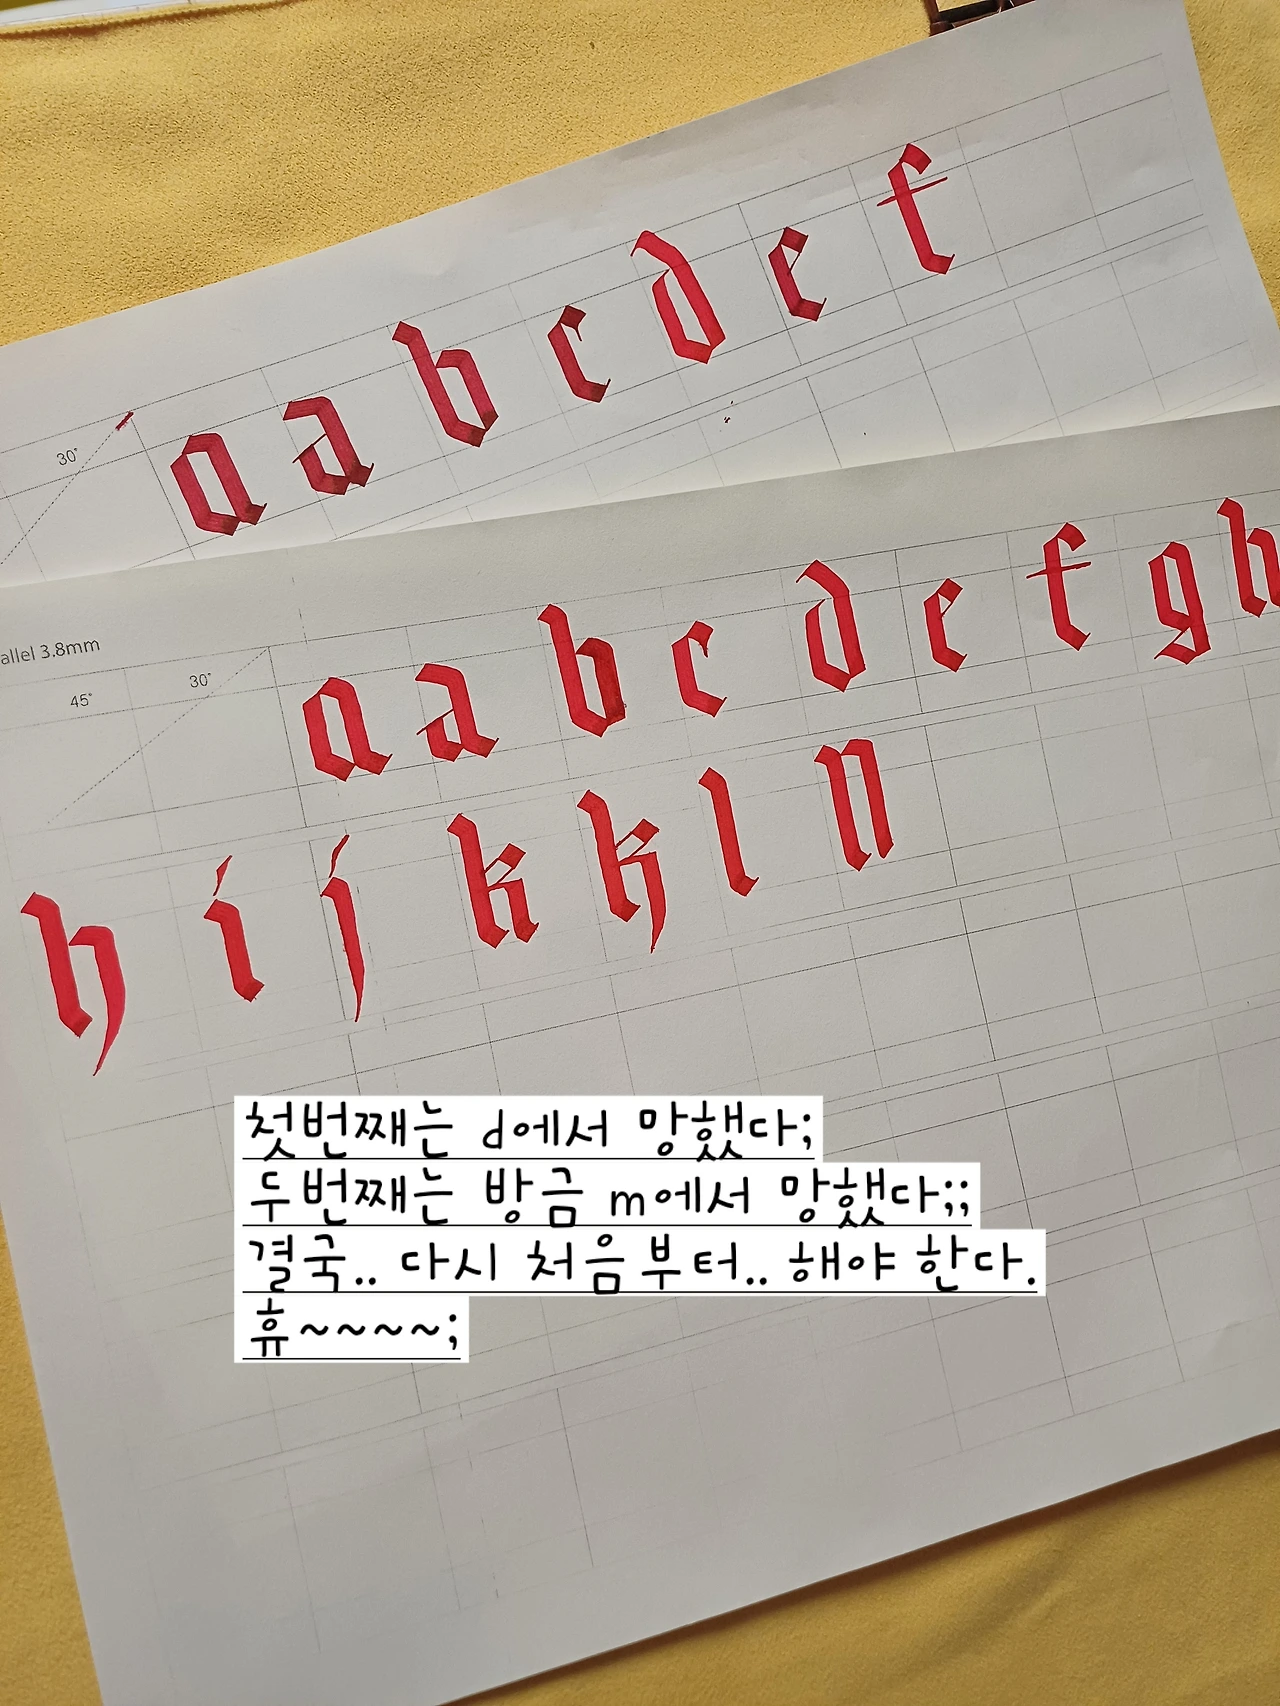 30°
a a b c d e f
allel 3.8mm
45° 30°
a a b c d e f g h
h i j k k l n
첫번째는 d에서 망했다;
두번째는 방금 m에서 망했다;;
결국.. 다시 처음부터.. 해야 한다.
휴~~~~;